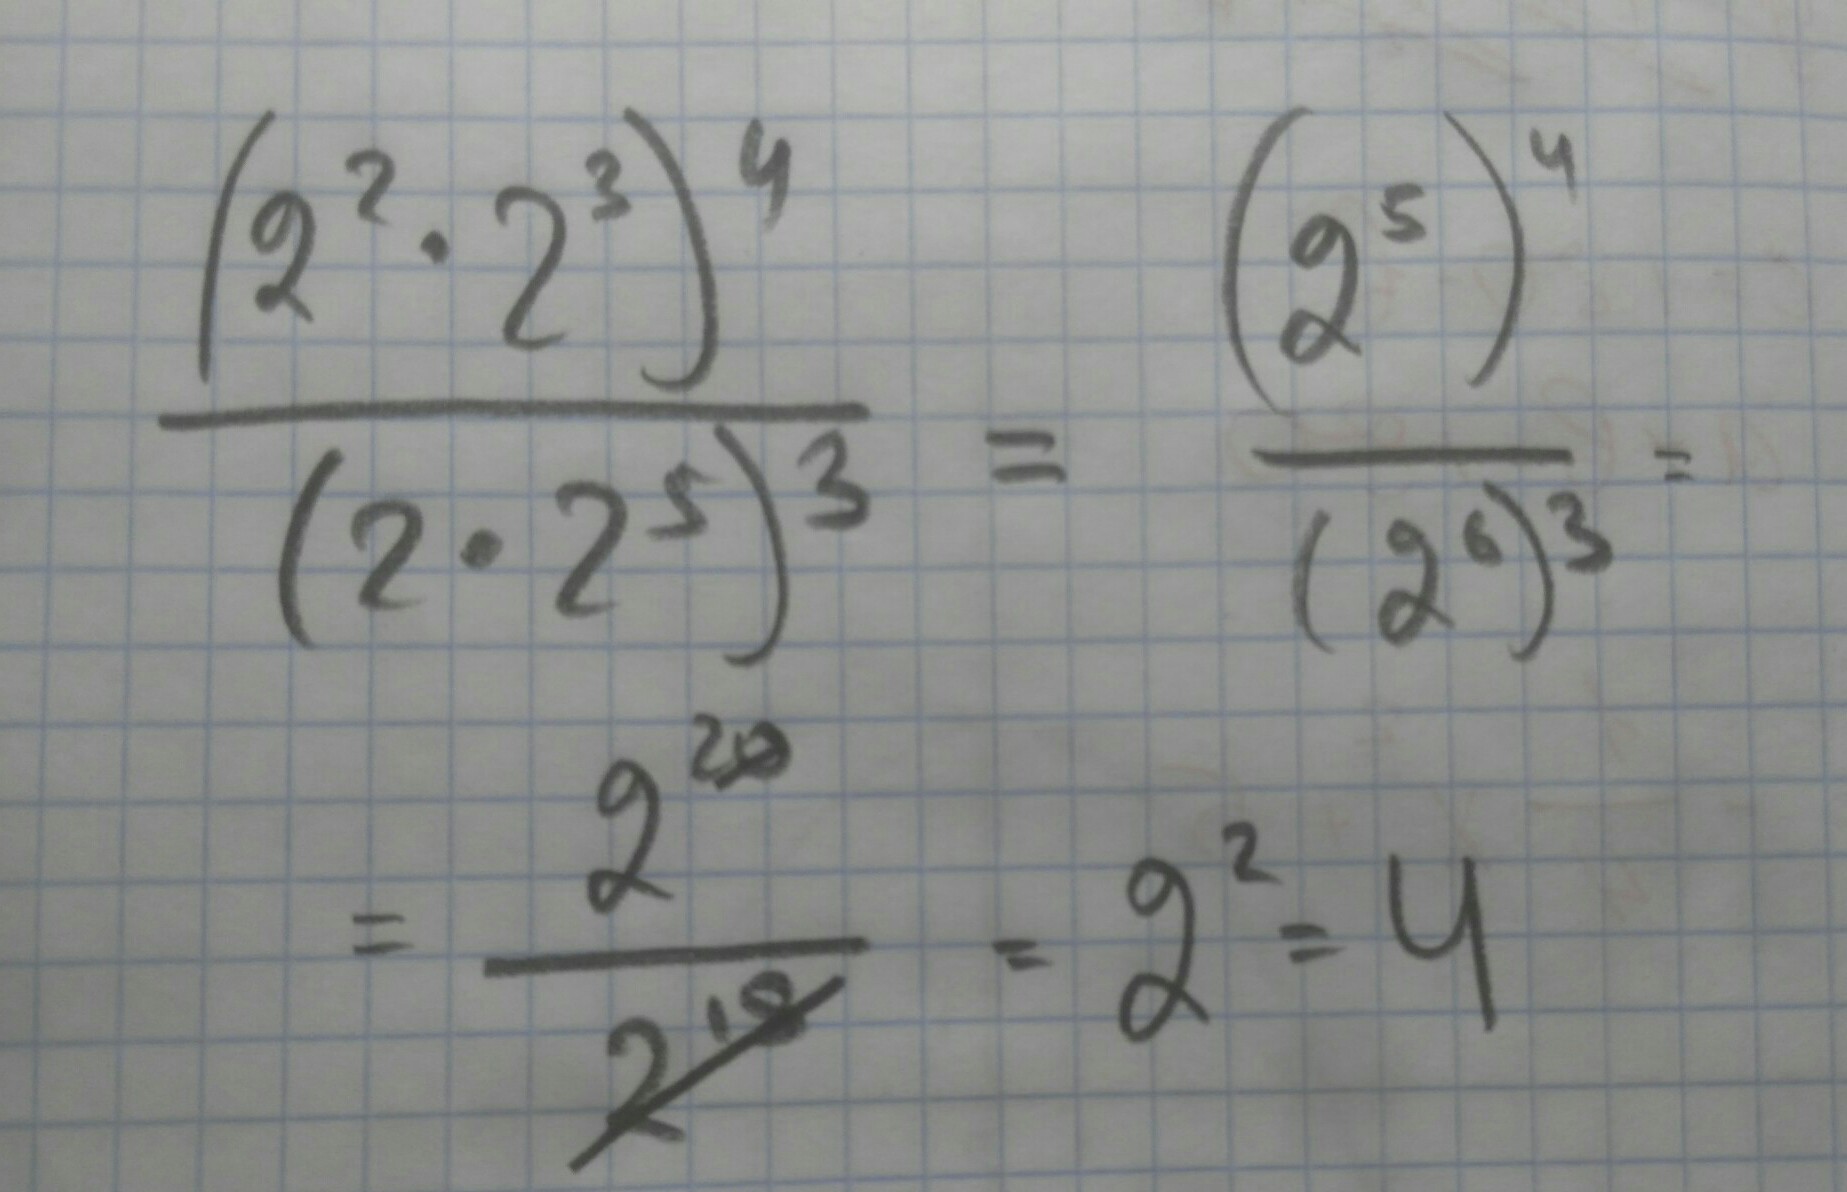 (2² · 2³)⁴ / (2 · 2⁵)³ = (2⁵)⁴ / (2⁶)³ =
= 2²⁰ / 2¹⁸ = 2² = 4